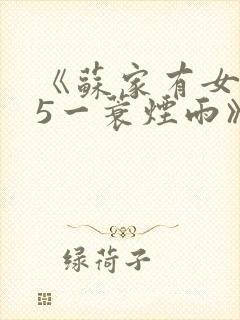 《蘇家有女
5一蓑煙雨》
绿荷子